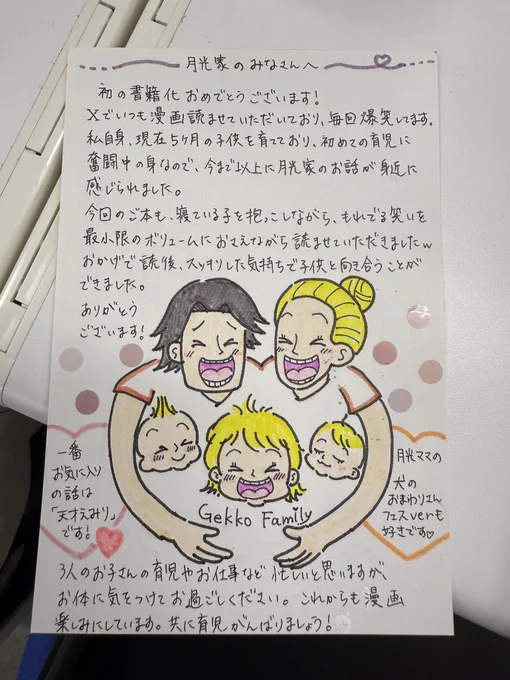 月光家のみなさんへ
初の書籍化おめでとうございます!
Xでいつも漫画読ませていただいており、毎回爆笑してます。
私自身、現在5ヶ月の子供を育てており、初めての育児に
奮闘中の身なので、今まで以上に月光家のお話が身近に
感じられました。
今回のご本も、寝ている子を抱っこしながら、もれでる笑いを
最小限のボリュームにおさえながら読ませていただきましたw
おかげで読後、スッキリした気持ちで子供と向き合うことが
できました。
ありがとう
ございます!
一番
お気に入り
の話は
「天才えみり」
です!
月光ママの
犬の
おまわりさん
フェスverも
好きです♡
Gekko Family
3人のお子さんの育児やお仕事など忙しいと思いますが、
お体に気をつけてお過ごしください。これからも漫画
楽しみにしています。共に育児がんばりましょう!